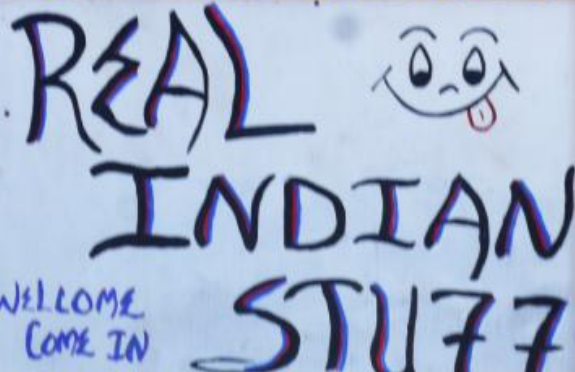 REAL
INDIAN
STUFF
WELLOME
COME IN